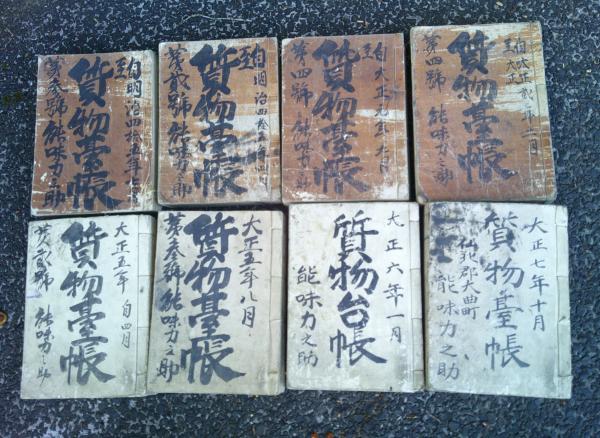 自明治四拾五年七月
至
質物臺帳
第参號 能味力之助
自明治四拾
至
質物臺帳
第貳號 能味力之助
自大正元年九月
至
質物臺帳
第四號 能味力之助
自大正貳年二月
至大正
質物臺帳
第四號 能味力之助
大正五年 自四月
質物臺帳
第貳號 能味力之助
大正五年八月
質物臺帳
第参號 能味力之助
大正六年一月
質物台帳
能味力之助
大正七年十月
質物臺帳
仙北郡大曲町
能味力之助